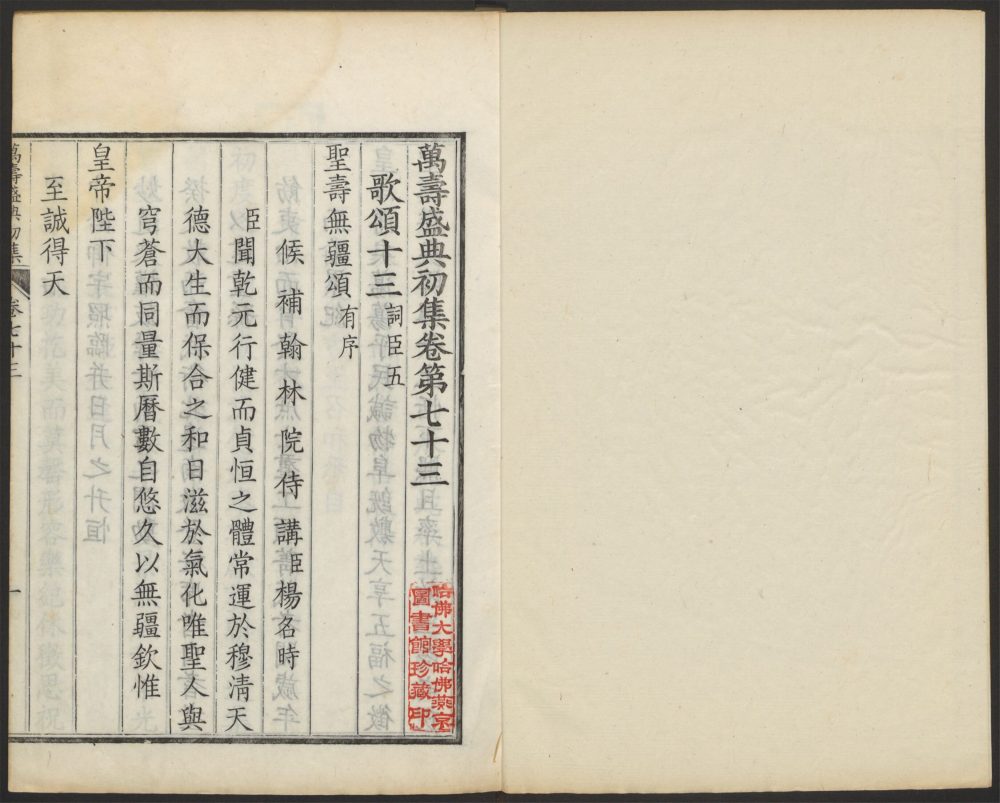 萬壽盛典初集卷第七十三
歌頌十三詞臣五
聖壽無疆頌有序
候補翰林院侍講臣楊名時
臣聞乾元行健而貞恒之體常運於穆清天
德大生而保合之和日滋於氣化唯聖人與
穹蒼而同量斯曆數自悠久以無疆欽惟
皇帝陛下
至誠得天
萬壽盛典初集
卷七十三
一
哈佛大學哈佛燕京
圖書館珍藏印